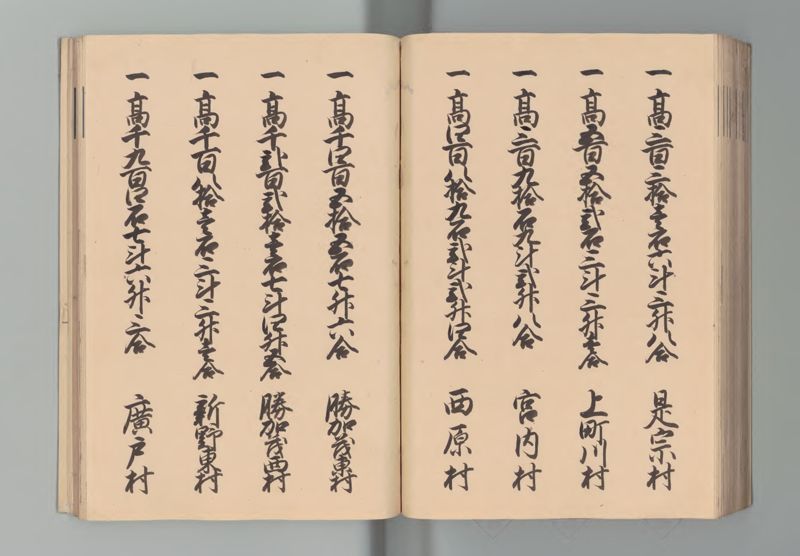 一 髙三百三拾壹石六斗三升八合 是宗村
一 髙五百五拾弐石三斗三升壹合 上町川村
一 髙三百九拾石九斗弐升八合 宮内村
一 髙四百八拾九石弐斗弐升四合 西原村
一 髙千四百五拾五石七升六合 勝加茂東村
一 髙千弐百弐拾壹石七斗四升五合 勝加茂西村
一 髙千百八拾壹石三斗三升壹合 新野東村
一 髙千九百四石七斗六升三合 廣戸村